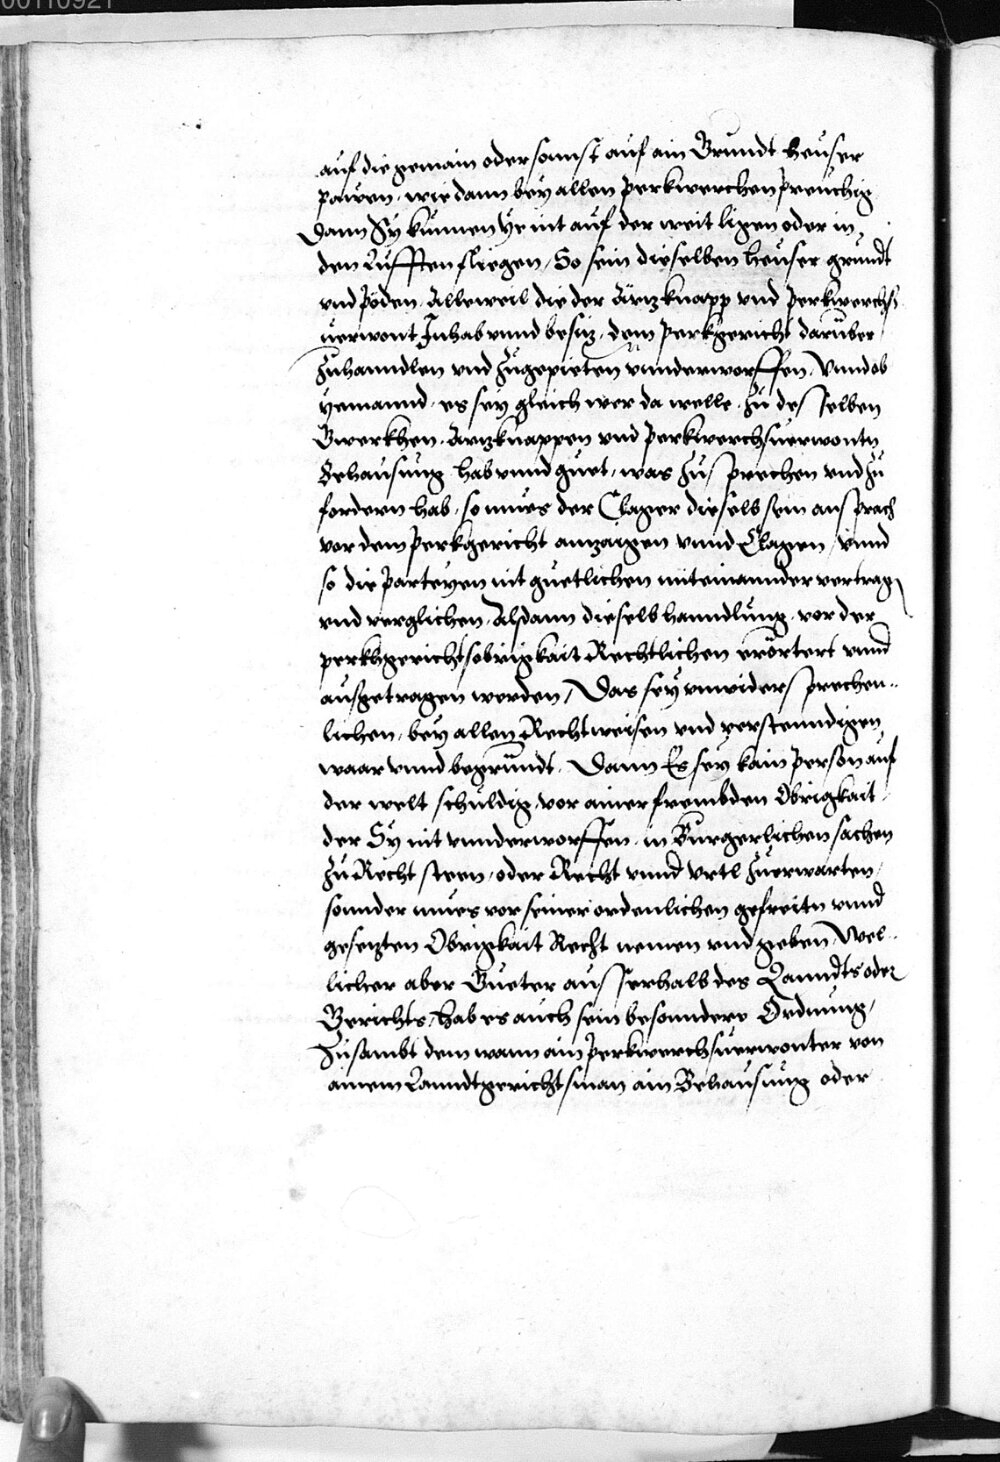 00110921
auf die gemain oder sonnst auf ain Grundt heuser
pauen, wie dann bey allen perkwerchen preuchig
Dann Sy künnen ye nit auf der weit ligen oder in
den Lüfften fliegen, So sein dieselben heuser grundt
vnd Pöden, Alleweil die der Ärzknapp vnd perkwerchs
uerwont Inhab vnnd besiz, dem perkgericht darüber
Zuhanndlen vnd Zugepieten vnnderworffen, Vnnd ob
yemannd, es sey gleich wer da welle, Zu desselben
Gwerkhen, Ärzknappen vnd perkwerchsuerwontn
Behausung hab vnnd guet, was Zusprechen vnd Zu
fordern hab, so mues der Clager dieselb sein ansprach
vor dem perkgericht anzaigen vnnd Clagen, vnnd
so die partheyen nit guetlichen miteinannder vertragn
vnd verglichen, Alsdann dieselb hanndlung, vor der
perkhgerichtsobrigkait Rechtlichen erörtert vnnd
ausgetragen werden, Das sey vnwidersprechen..
lichen, bey allen Rechtweisen vnd verstenndigen
waar vnnd begründt, Dann Es sey kain person auf
der welt schuldig, vor ainer frembden Obrigkait,
der Sy nit vnnderworffen, in Burgerlichen sachen
Zu Recht steen, oder Recht vnnd Vrtl Zuerwarten,
sonnder mues vor seiner ordenlichen gefreitn vnnd
gesezten Obrigkait Recht nemen vnd geben, Wel..
licher aber Gueter ausserhalb des Lanndts oder
Gerichts, hab es auch sein besonndere Ordnung,
Zusambt dem wann ain perkwerchsuerwonter von
ainem Lanndtgerichtsman ain Behausung oder